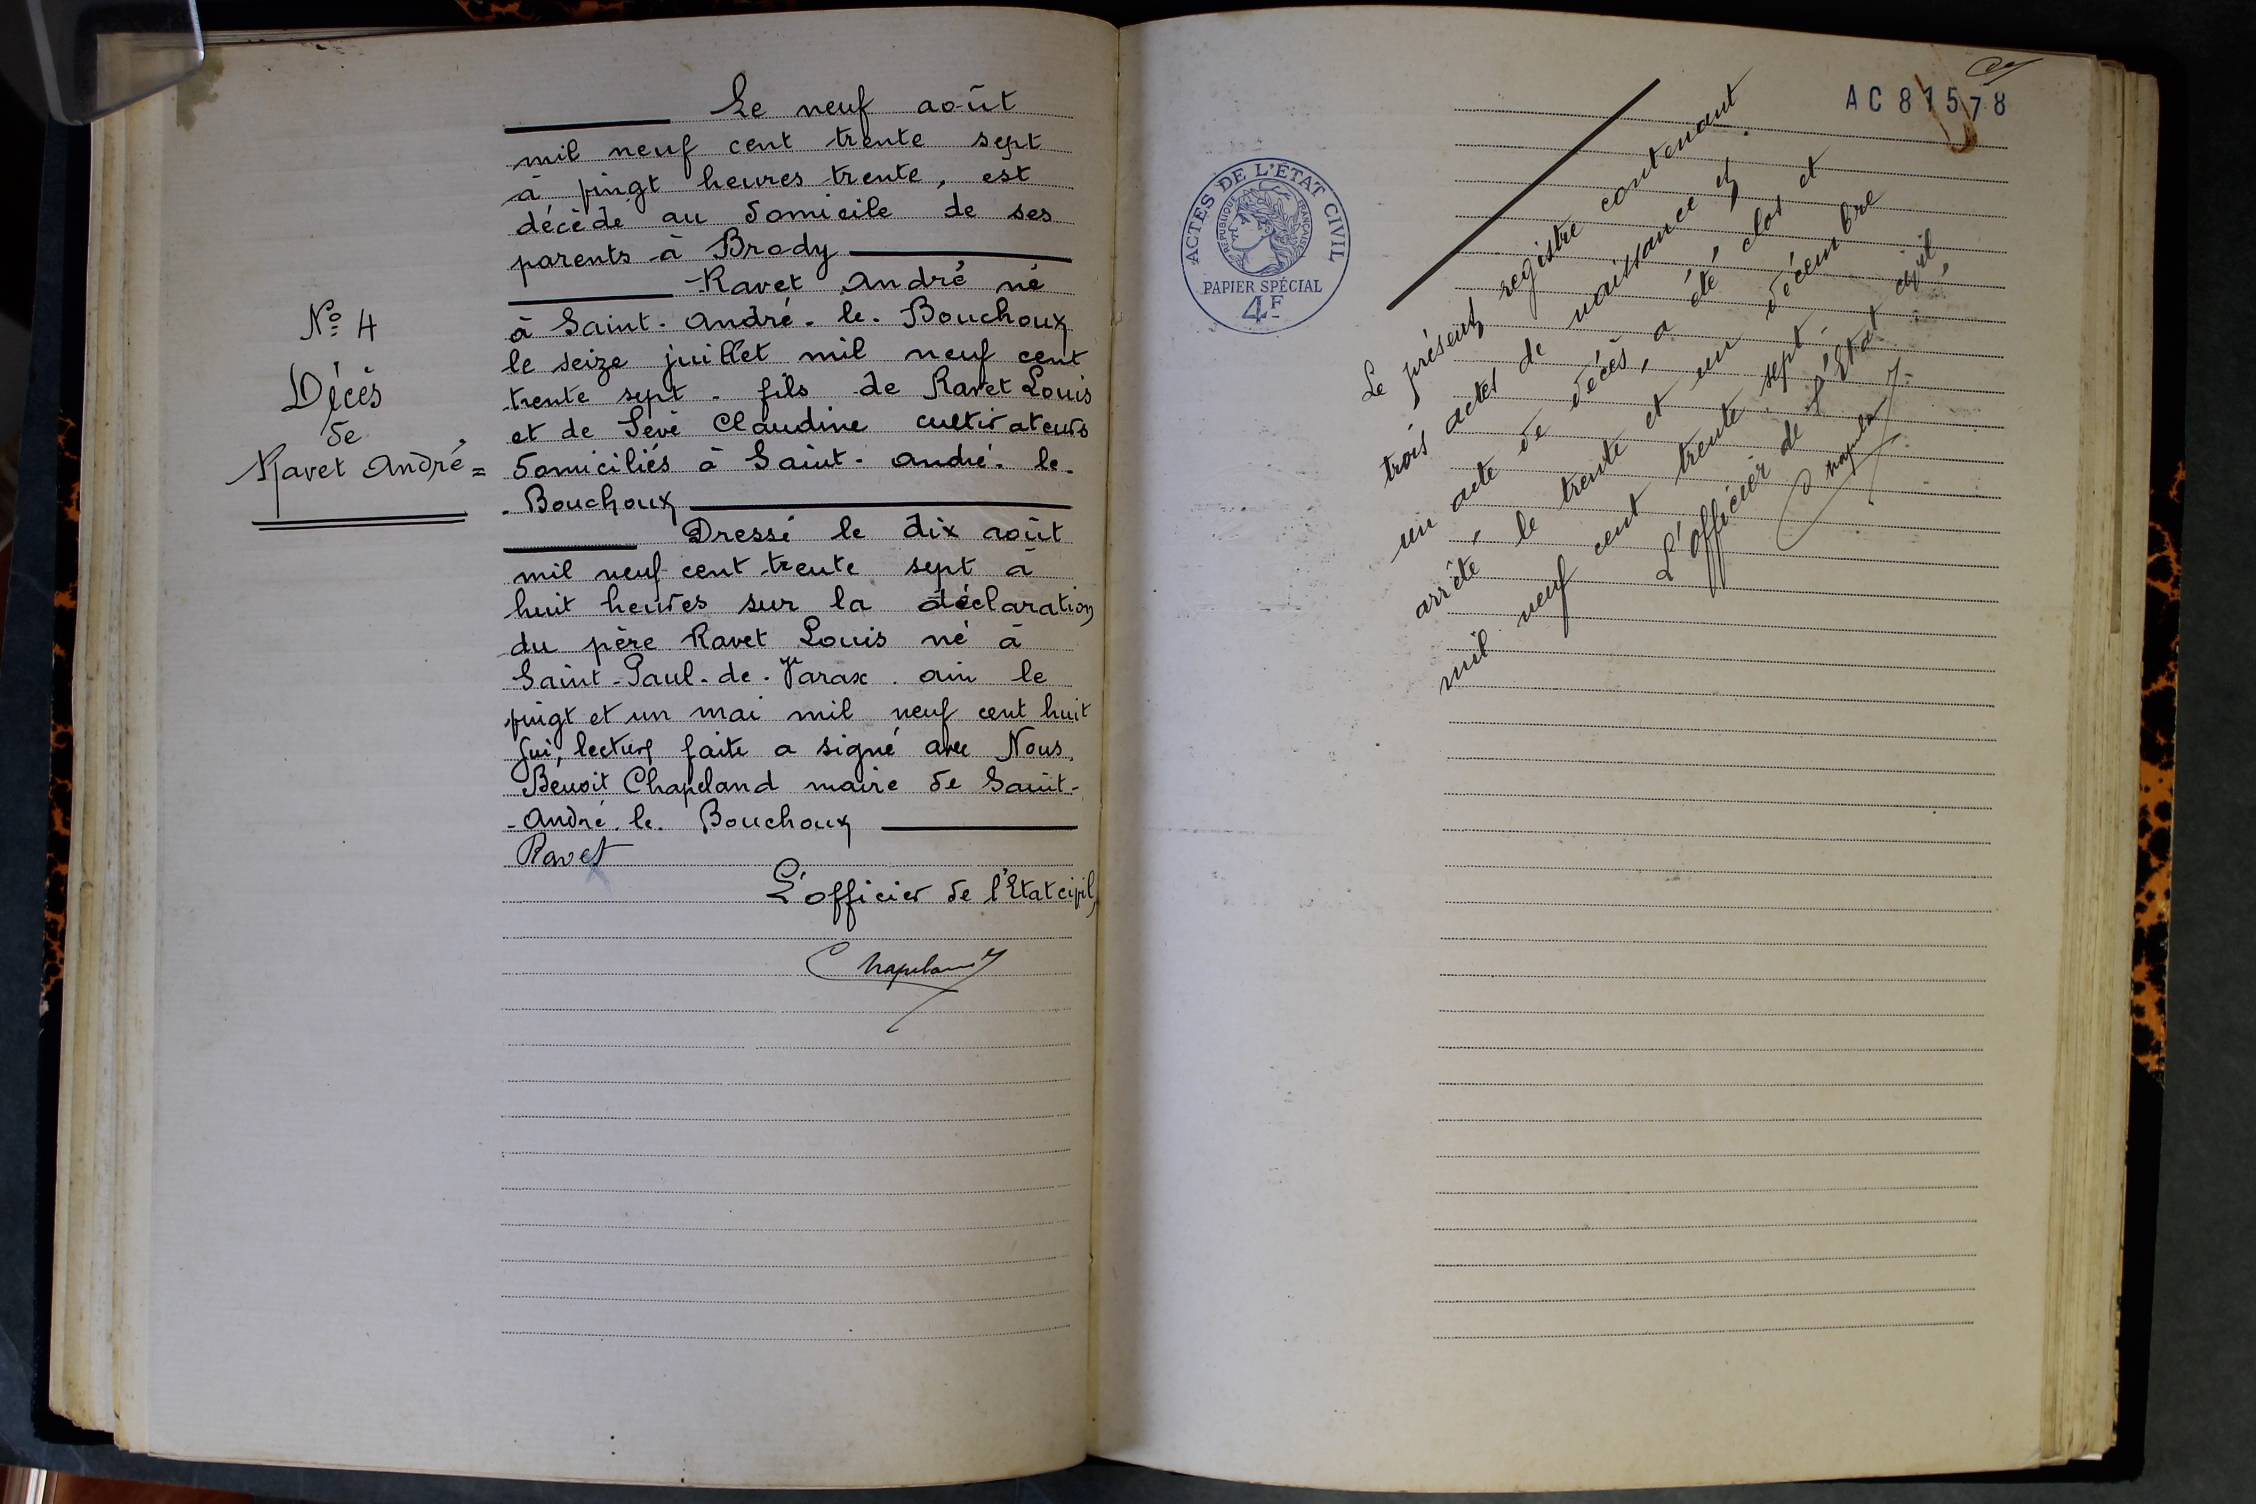 Le neuf août
mil neuf cent trente sept
à vingt heures trente, est
décédé au domicile de ses
parents à Brody
Ravet André né
à Saint-André-le-Bouchoux
le seize juillet mil neuf cent
trente sept - fils de Ravet Louis
et de Sève Claudine cultivateurs
domiciliés à Saint-André-le-
-Bouchoux
Dressé le dix août
mil neuf cent trente sept à
huit heures sur la déclaration
du père Ravet Louis né à
Saint-Paul-de-Varax-ain le
vingt et un mai mil neuf cent huit
qui, lecture faite a signé avec Nous,
Benoit Chapeland maire de Saint-
-André-le-Bouchoux
Ravet
L'officier de l'Etat civil,
Chapeland
No 4
Décès
de
Ravet André =
AC 81578
ACTES DE L'ÉTAT CIVIL
RÉPUBLIQUE FRANÇAISE
PAPIER SPÉCIAL
4F
Le présent registre contenant
trois actes de naissance et
un acte de décès, a été clos et
arrêté le trente et un décembre
mil neuf cent trente sept.
L'officier de l'Etat civil,
Chapeland